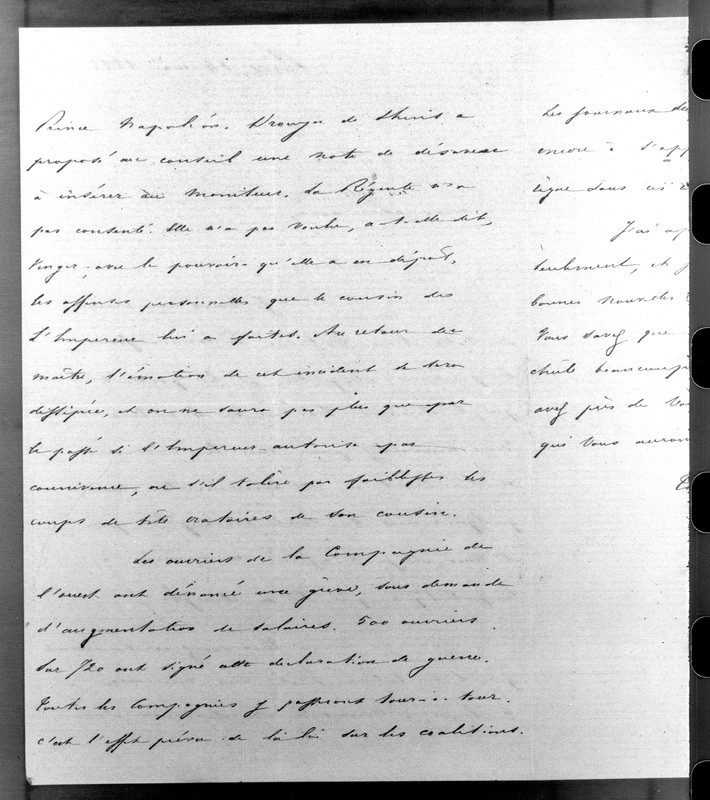 Prince Napoléon. Drouyn de Lhuis a
proposé au conseil une note de désaveu
à insérer au Moniteur. La Régente n'a
pas consenti. Elle n'a pas voulu, a-t-elle dit,
venger, avec le pouvoir qu'elle a en dépôt,
les offenses personnelles que le cousin de
L'Empereur lui a faites. Au retour du
maître, l'émotion de cet incident se sera
dissipée, et on ne saura pas plus que par
le passé si l'Empereur autorise par
connivence, ou s'il tolère par faiblesse les
coups de tête oratoires de son cousin.
Les ouvriers de la Compagnie de
l'ouest ont dénoncé une grève, sous demande
d'augmentation de salaires. 500 ouvriers
sur 720 ont signé cette déclaration de guerre.
Toutes les Compagnies y passeront tour-à-tour.
c'est l'effet prévu de la loi sur les coalitions.
Les journaux
encore à
ligne dans ces
J'ai
seulement, et
bonnes nouvelles
Vous savez que
avez près de
qui vous